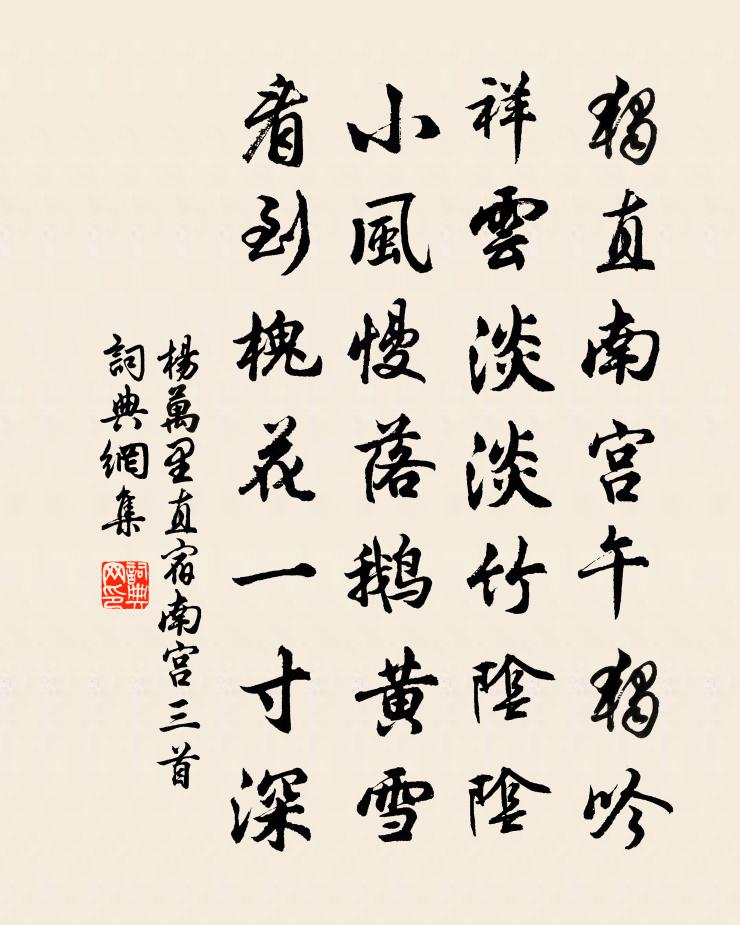 獨直南宮午獨吟
祥雲淡淡竹陰陰
小風慢落鵝黃雪
看到槐花一寸深
楊萬里直宿南宮三首
詞典網集
詞典网印